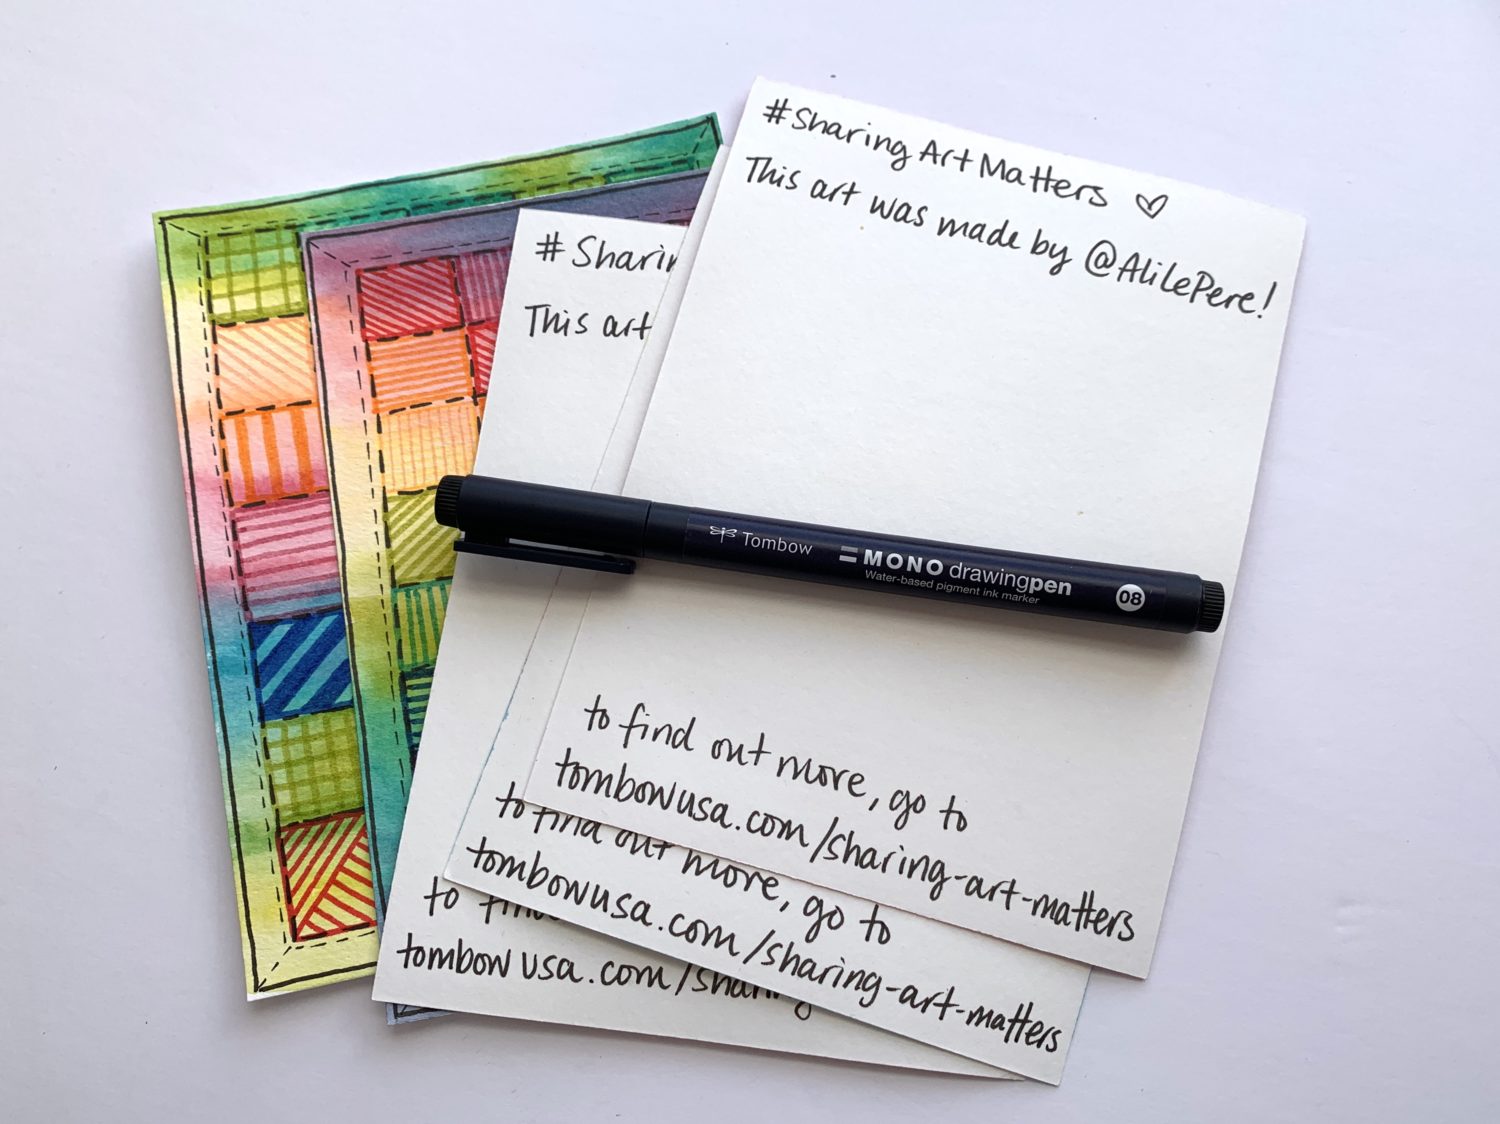 #Sharing Art Matters ♡
This art was made by @AliLePere!
# Sharin
This art
Tombow MONO drawingpen 08
Water-based pigment ink marker
to find out more, go to
tombowusa.com/sharing-art-matters
to find out more, go to
tombowusa.com/sharing-art-matters
to find
tombowusa.com/sharing